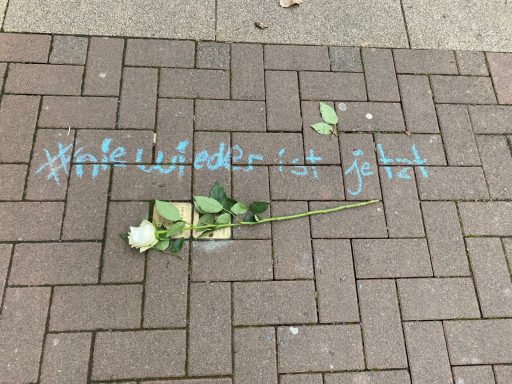 #nie wieder ist jetzt